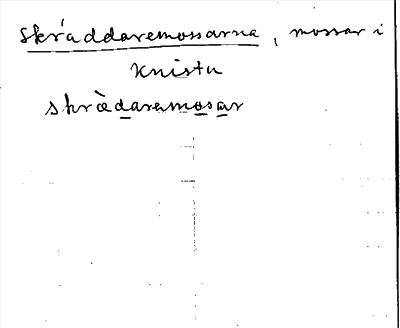 Skräddaremossarna, mossar i
Knista
skrädaremosar